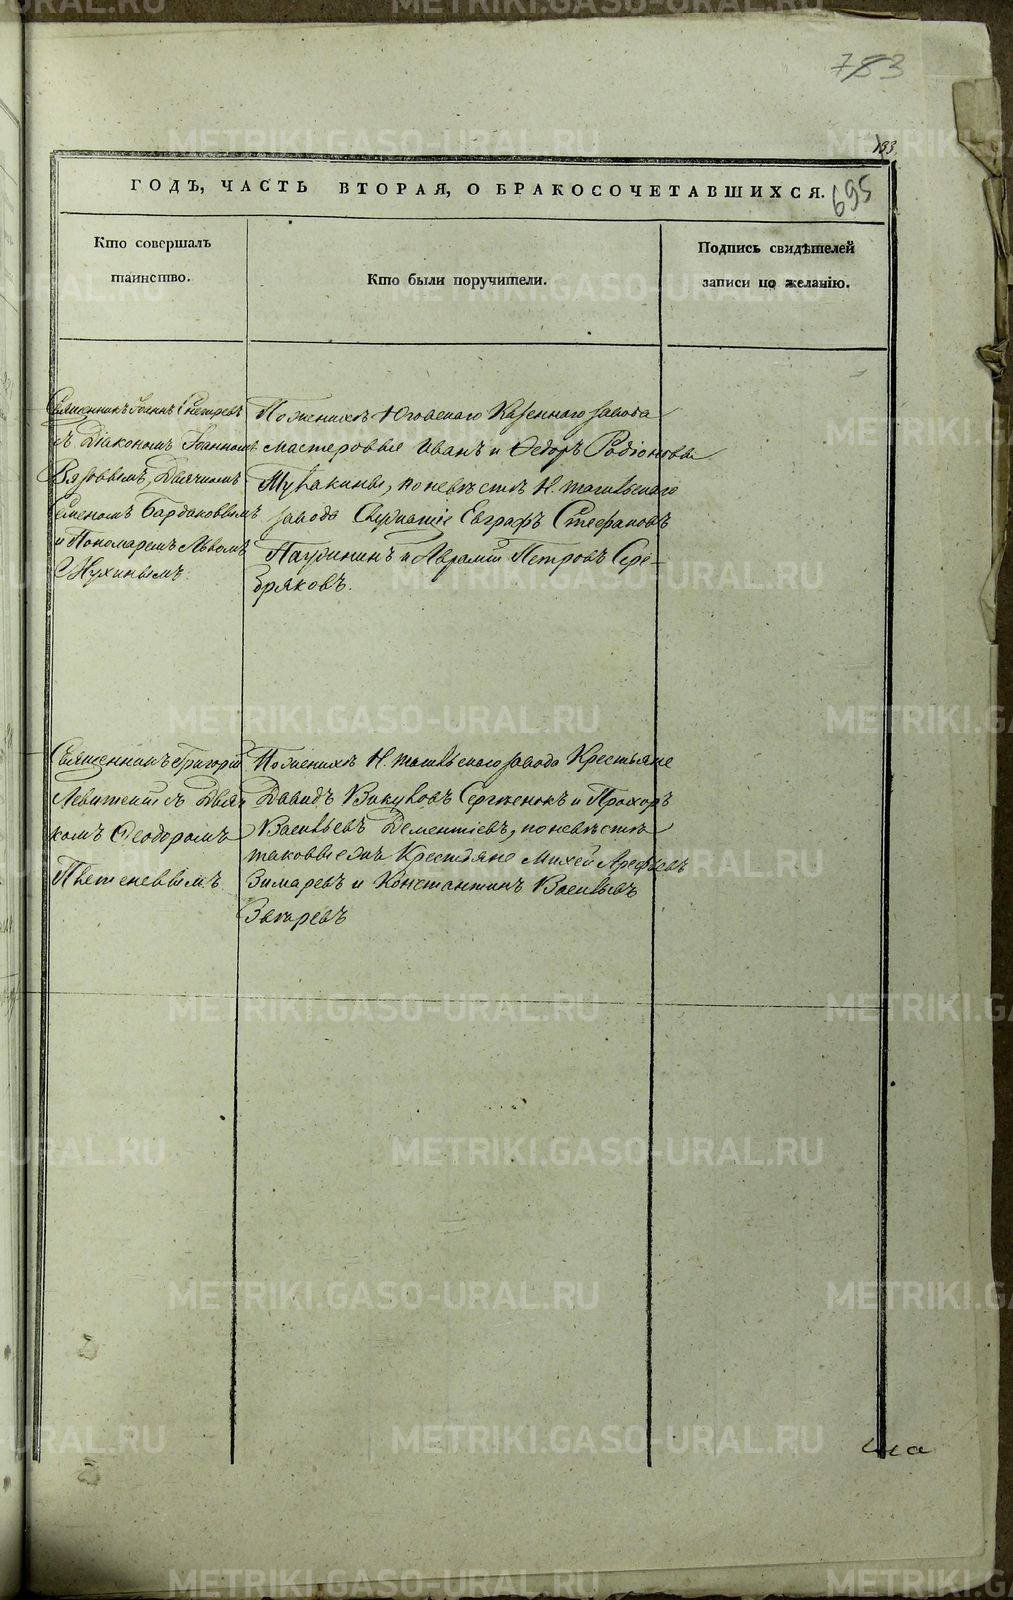 783
133
ГОДЪ, ЧАСТЬ ВТОРАЯ, О БРАКОСОЧЕТАВШИХСЯ.
695
Кто совершалъ
таинство.
Кто были поручители.
Подпись свидѣтелей
записи по желанію.
Священникъ Іоаннъ
съ Діакономъ Іоанномъ
Вязовымъ, Дьячкомъ
Семеномъ Бардаковымъ
и Пономаремъ Львомъ
Пожениху Юговскаго Казеннаго завода
мастеровые Иванъ и Ѳедоръ Родіоновы
поневѣстѣ Н. тагильскаго
завода Евграфъ Стефановъ
и Аврамій Петровъ Сере-
бряковъ.
Священникъ Григорій
Левитскій съ Дьяч
комъ Ѳеодоромъ
Пожениху Н. тагильскаго завода Крестьяне
Давидъ Викуловъ и Прохоръ
Васильевъ Дементіевъ, поневѣстѣ
таковыежъ Крестьяне Михей Арефьевъ
Зимаревъ и Константинъ Васильевъ
METRIKI.GASO-URAL.RU